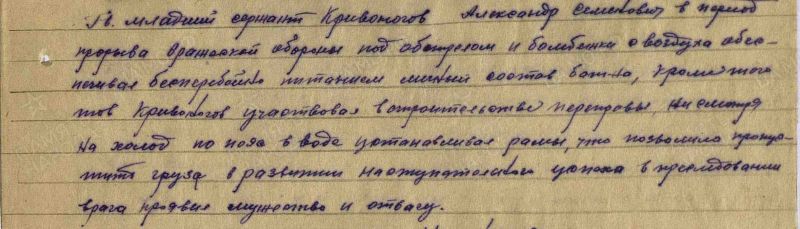 Гв. младший сержант Кривоногов Александр Семенович в период
прорыва вражеской обороны под обстрелом и бомбежки с воздуха обес-
печивал бесперебойно питанием личный состав бат-на, кроме того
тов Кривоногов участвовал в строительстве переправы, не смотря
на холод по пояс в воде устанавливал рамы, что позволило
груза в развитии наступательного успеха в преследовании
врага проявил мужество и отвагу.